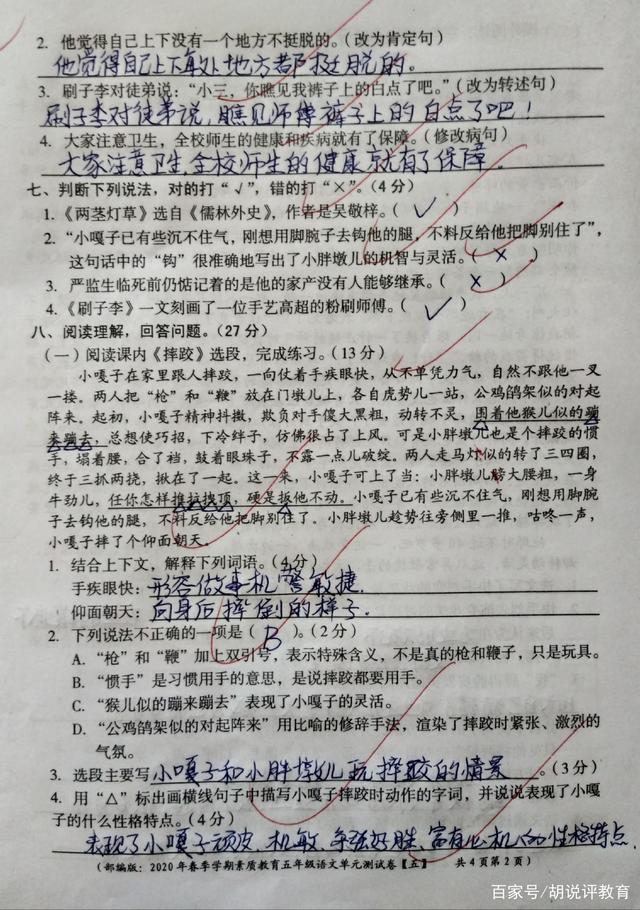 2. 他觉得自己上下没有一个地方不挺脱的。(改为肯定句)
他觉得自己上下每处地方都挺脱的。
3. 刷子李对徒弟说:“小三,你瞧见我裤子上的白点了吧。”(改为转述句)
刷子李对徒弟说,瞧见师傅裤子上的白点了吧!
4. 大家注意卫生,全校师生的健康和疾病就有了保障。(修改病句)
大家注意卫生,全校师生的健康就有了保障。
七、判断下列说法,对的打“√”,错的打“×”。(4分)
1.《两茎灯草》选自《儒林外史》,作者是吴敬梓。( √ )
2.“小嘎子已有些沉不住气,刚想用脚腕子去钩他的腿,不料反给他把脚别住了”,
这句话中的“钩”很准确地写出了小胖墩儿的机智与灵活。( × )
3. 严监生临死前仍惦记着的是他的家产没有人能够继承。( × )
4.《刷子李》一文刻画了一位手艺高超的粉刷师傅。( √ )
八、阅读理解,回答问题。(27分)
(一)阅读课内《摔跤》选段,完成练习。(13分)
小嘎子在家里跟人摔跤,一向仗着手疾眼快,从不单凭力气,自然不跟他一叉
一搂。两人把“枪”和“鞭”放在门墩儿上,各自虎势儿一站,公鸡鸽架似的对起
阵来。起初,小嘎子精神抖擞,欺负对手傻大黑粗,动转不灵,围着他猴儿似的蹦
来蹦去,总想使巧招,下冷绊子,仿佛很占了上风。可是小胖墩儿也是个摔跤的惯
手,塌着腰,合了裆,鼓着眼珠子,不露一点儿破绽。两人走马灯似的转了三四圈,
终于三抓两挠,揪在了一起。这一来,小嘎子可上了当:小胖墩儿膀大腰粗,一身
牛劲儿,任你怎样推拉拽顶,硬是扳他不动。小嘎子已有些沉不住气,刚想用脚腕
子去钩他的腿,不料反给他把脚别住了。小胖墩儿趁势往旁侧里一推,咕咚一声,
小嘎子摔了个仰面朝天。
1. 结合上下文,解释下列词语。(4分)
手疾眼快:形容做事机警敏捷.
仰面朝天:向身后摔倒的样子.
2. 下列说法不正确的一项是( B )。(2分)
A.“枪”和“鞭”加上双引号,表示特殊含义,不是真的枪和鞭子,只是玩具。
B.“惯手”是习惯用手的意思,是说摔跤都要用手。
C.“猴儿似的蹦来蹦去”表现了小嘎子的灵活。
D.“公鸡鸽架似的对起阵来”用比喻的修辞手法,渲染了摔跤时紧张、激烈的
气氛。
3. 选段主要写小嘎子和小胖墩儿玩摔跤的情景。(3分)
4. 用“△”标出画横线句子中描写小嘎子摔跤时动作的字词,并说说表现了小嘎
子的什么性格特点。(4分)
表现了小嘎子顽皮、机敏、争强好胜、富有心机的性格特点.
(部编版:2020年春季学期素质教育五年级语文单元测试卷【五】 共4页第2页)
百家号/胡说评教育